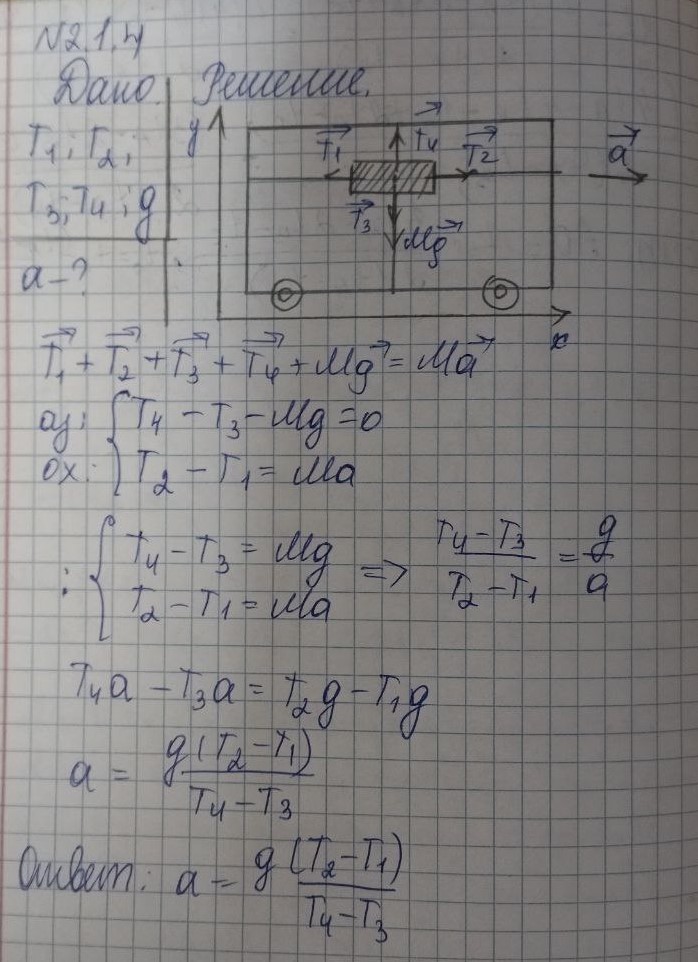 N2.1.4
Дано. Решение.
T₁; T₂;
T₃; T₄; g
a-?
y
T₁→ T₄→ T₂→ a→
T₃→
Mg→
x
T₁→ + T₂→ + T₃→ + T₄→ + Mg→ = Ma→
oy: { T₄ - T₃ - Mg = 0
ox: { T₂ - T₁ = Ma
: { T₄ - T₃ = Mg
T₂ - T₁ = Ma => (T₄ - T₃)/(T₂ - T₁) = g/a
T₄a - T₃a = T₂g - T₁g
a = g(T₂ - T₁)/(T₄ - T₃)
Ответ: a = g(T₂ - T₁)/(T₄ - T₃)